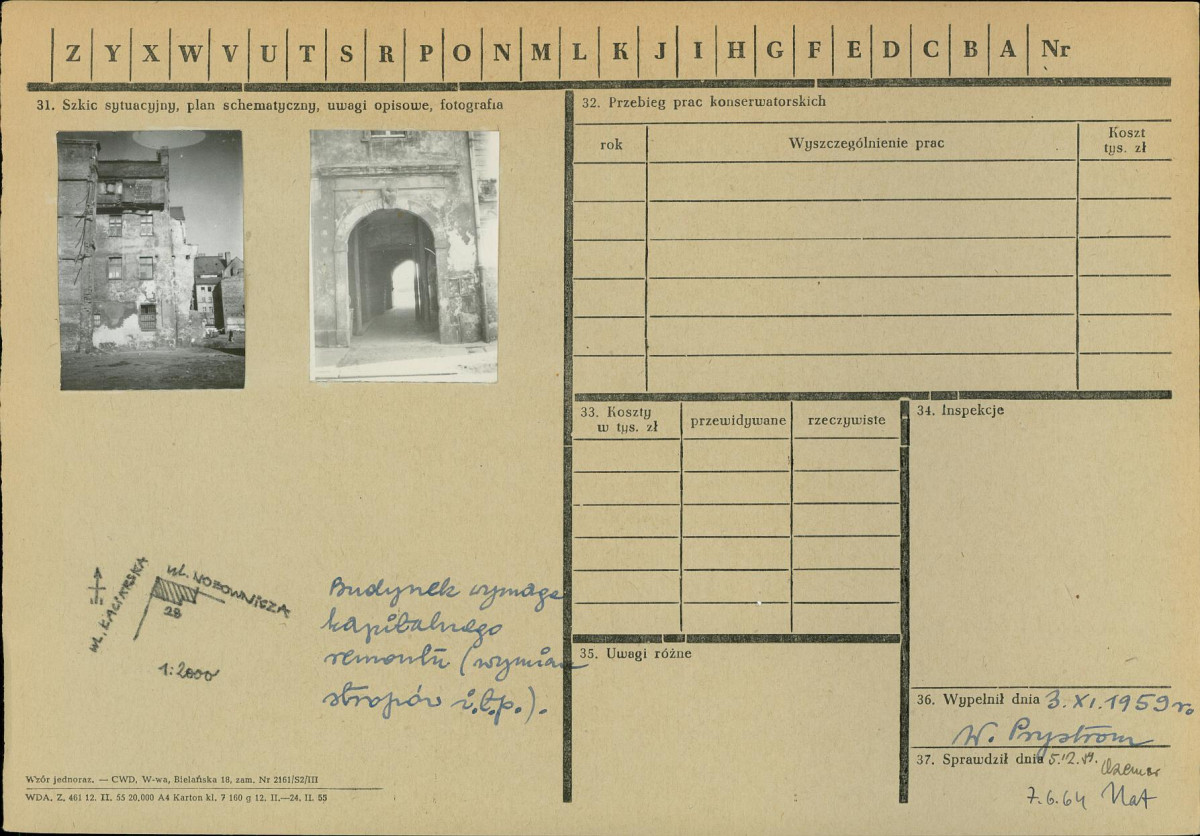 Z Y X W V U T S R P O N M L K J I H G F E D C B A Nr
31. Szkic sytuacyjny, plan schematyczny, uwagi opisowe, fotografia
ul. ŁACIARSKA
ul. NOŻOWNICZA
28
1:2000
Budynek wymaga
kapitalnego
remontu (wymian
stropów i.t.p.).
Wzór jednoraz. — CWD, W-wa, Bielańska 18, zam. Nr 2161/S2/III
WDA. Z. 461 12. II. 55 20.000 A4 Karton kl. 7 160 g 12. II.—24. II. 55
32. Przebieg prac konserwatorskich
rok
Wyszczególnienie prac
Koszt
tys. zł
33. Koszty
w tys. zł
przewidywane
rzeczywiste
34. Inspekcje
35. Uwagi różne
36. Wypełnił dnia 3. XI. 1959 r.
W. Prystrom
37. Sprawdził dnia
7.6.64